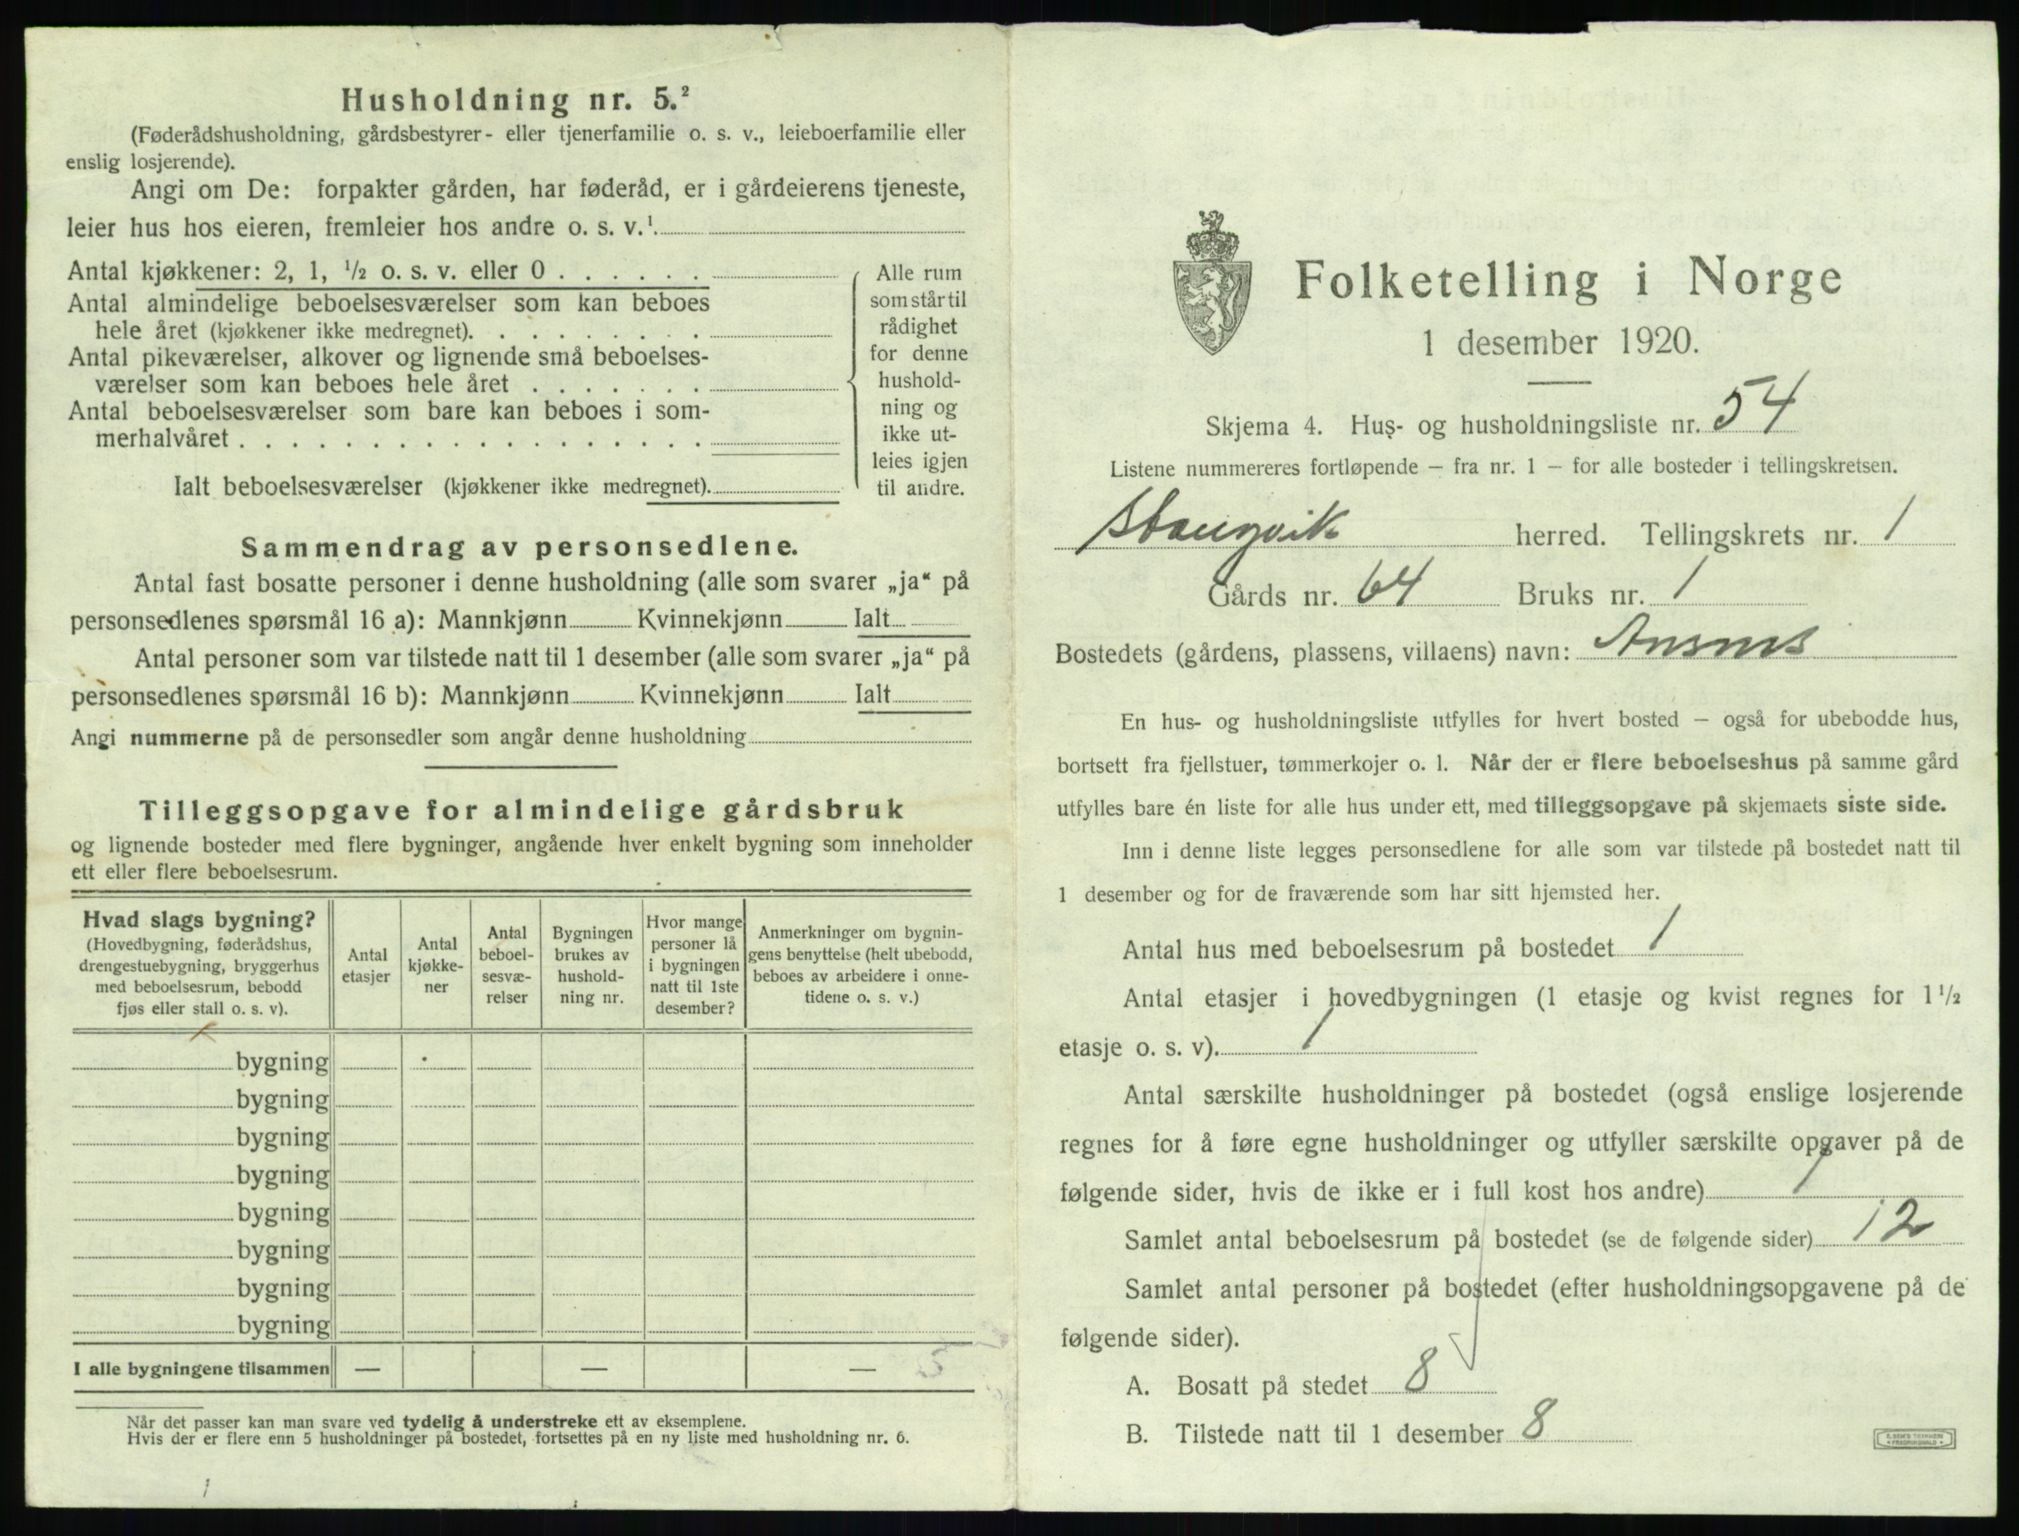 Husholdning nr. 5.²
(Føderådshusholdning, gårdsbestyrer- eller tjenerfamilie o. s. v., leieboerfamilie eller
enslig losjerende).
Angi om De: forpakter gården, har føderåd, er i gårdeierens tjeneste,
leier hus hos eieren, fremleier hos andre o. s. v.¹
Antal kjøkkener: 2, 1, ½ o. s. v. eller 0
Antal almindelige beboelsesværelser som kan beboes
hele året (kjøkkener ikke medregnet).
Antal pikeværelser, alkover og lignende små beboelses-
værelser som kan beboes hele året
Antal beboelsesværelser som bare kan beboes i som-
merhalvåret
Ialt beboelsesværelser (kjøkkener ikke medregnet).
Alle rum
som står til
rådighet
for denne
hushold-
ning og
ikke ut-
leies igjen
til andre.
Sammendrag av personsedlene.
Antal fast bosatte personer i denne husholdning (alle som svarer „ja“ på
personsedlenes spørsmål 16 a): Mannkjønn Kvinnekjønn Ialt
Antal personer som var tilstede natt til 1 desember (alle som svarer „ja“ på
personsedlenes spørsmål 16 b): Mannkjønn Kvinnekjønn Ialt
Angi nummerne på de personsedler som angår denne husholdning
Tilleggsopgave for almindelige gårdsbruk
og lignende bosteder med flere bygninger, angående hver enkelt bygning som inneholder
ett eller flere beboelsesrum.
Hvad slags bygning?
(Hovedbygning, føderådshus,
drengestuebygning, bryggerhus
med beboelsesrum, bebodd
fjøs eller stall o. s. v).
Antal
etasjer
Antal
kjøkke-
ner
Antal
beboel-
sesvæ-
relser
Bygningen
brukes av
hushold-
ning nr.
Hvor mange
personer lå
i bygningen
natt til 1ste
desember?
Anmerkninger om bygnin-
gens benyttelse (helt ubebodd,
beboes av arbeidere i onne-
tidene o. s. v.)
bygning
bygning
bygning
bygning
bygning
bygning
bygning
bygning
I alle bygningene tilsammen — — —
Når det passer kan man svare ved tydelig å understreke ett av eksemplene.
Hvis der er flere enn 5 husholdninger på bostedet, fortsettes på en ny liste med husholdning nr. 6.
Folketelling i Norge
1 desember 1920.
Skjema 4. Hus- og husholdningsliste nr. 54
Listene nummereres fortløpende – fra nr. 1 – for alle bosteder i tellingskretsen.
Stangvik herred. Tellingskrets nr. 1
Gårds nr. 64 Bruks nr. 1
Bostedets (gårdens, plassens, villaens) navn: Ansnes
En hus- og husholdningsliste utfylles for hvert bosted – også for ubebodde hus,
bortsett fra fjellstuer, tømmerkojer o. l. Når der er flere beboelseshus på samme gård
utfylles bare én liste for alle hus under ett, med tilleggsopgave på skjemaets siste side.
Inn i denne liste legges personsedlene for alle som var tilstede på bostedet natt til
1 desember og for de fraværende som har sitt hjemsted her.
Antal hus med beboelsesrum på bostedet 1
Antal etasjer i hovedbygningen (1 etasje og kvist regnes for 1½
etasje o. s. v). 1
Antal særskilte husholdninger på bostedet (også enslige losjerende
regnes for å føre egne husholdninger og utfyller særskilte opgaver på de
følgende sider, hvis de ikke er i full kost hos andre) 1
Samlet antal beboelsesrum på bostedet (se de følgende sider) 12
Samlet antal personer på bostedet (efter husholdningsopgavene på de
følgende sider).
A. Bosatt på stedet 8
B. Tilstede natt til 1 desember 8